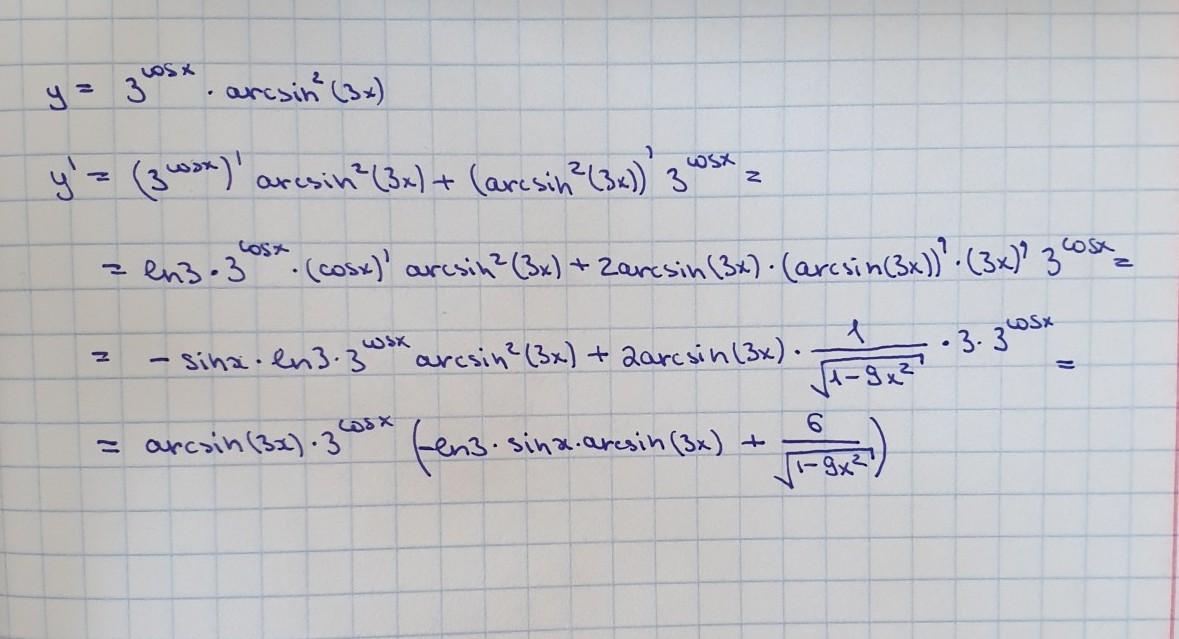 y = 3^{cosx} · arcsin²(3x)
y' = (3^{cosx})' arcsin²(3x) + (arcsin²(3x))' 3^{cosx} =
= ln3 · 3^{cosx} · (cosx)' arcsin²(3x) + 2arcsin(3x) · (arcsin(3x))' · (3x)' 3^{cosx} =
= - sinx · ln3 · 3^{cosx} arcsin²(3x) + 2arcsin(3x) · 1/√(1-9x²) · 3 · 3^{cosx} =
= arcsin(3x) · 3^{cosx} (-ln3 · sinx · arcsin(3x) + 6/√(1-9x²))